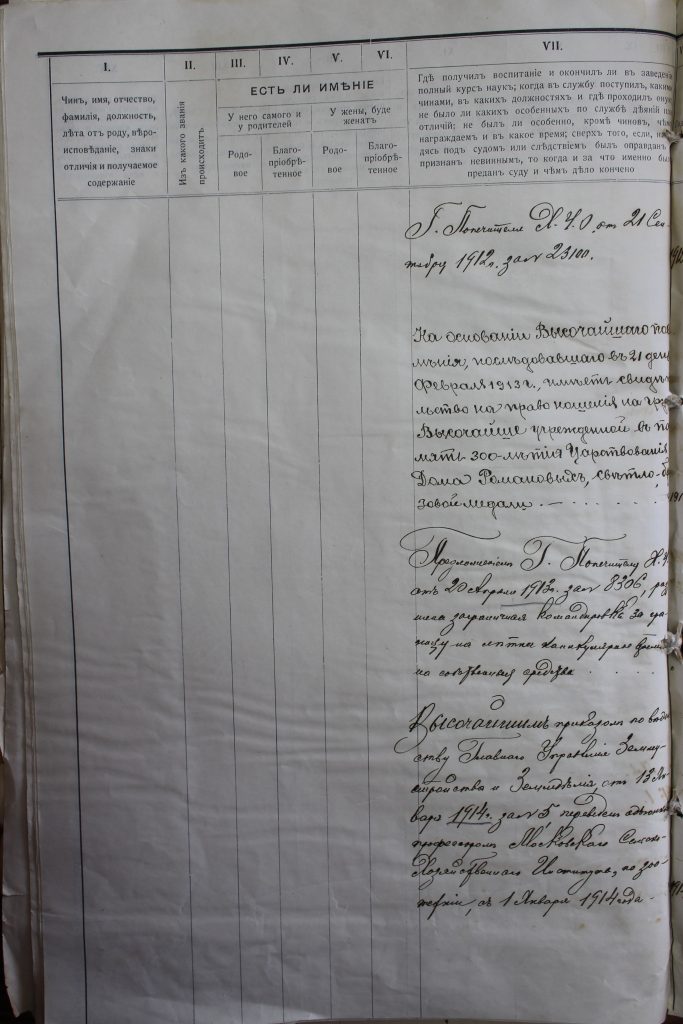 I.
II.
III.
IV.
V.
VI.
VII.
Чинъ, имя, отчество,
фамилія, должность,
лѣта отъ роду, вѣро-
исповѣданіе, знаки
отличія и получаемое
содержаніе
Изъ какого званія
происходитъ
ЕСТЬ ЛИ ИМѢНІЕ
У него самого и
у родителей
У жены, буде
женатъ
Родо-
вое
Благо-
пріобрѣ-
тенное
Родо-
вое
Благо-
пріобрѣ-
тенное
Гдѣ получилъ воспитаніе и окончилъ ли въ заведені
полный курсъ наукъ; когда въ службу поступилъ, каким
чинами, въ какихъ должностяхъ и гдѣ проходилъ оную
не было ли какихъ особенныхъ по службѣ дѣяній ил
отличій: не былъ ли особенно, кромѣ чиновъ, чѣм
награждаемъ и въ какое время; сверхъ того, если, на
дясь подъ судомъ или слѣдствіемъ былъ оправданъ
признанъ невиннымъ, то когда и за что именно был
преданъ суду и чѣмъ дѣло кончено
Г. Попечителя Х. У. О. отъ 21 Сен-
тября 1912 г. за № 23100.
На основаніи Высочайшаго пов
мѣнія, послѣдовавшаго въ 21 день
Февраля 1913 г., имѣетъ свидѣте
льство на право ношенія на груд
Высочайше учрежденной въ па
мять 300-лѣтія Царствованія
Дома Романовыхъ, свѣтло-бр
зовой медали
Предложеніемъ Г. Попечителя Х. У.
отъ 20 Апрѣля 1913 г. за № 8306, раз
шена заграничная командировка за гра-
ницу на лѣтнее каникулярное время
на собственныя средства
Высочайшимъ приказомъ по вѣдом
ству Главнаго Управленія Землеу-
стройства и Земледѣлія, отъ 13 Ян
варя 1914 г. за № 5, переведенъ
профессоромъ Московскаго Сельско-
Хозяйственнаго Института, по зоо-
съ 1 Января 1914 года